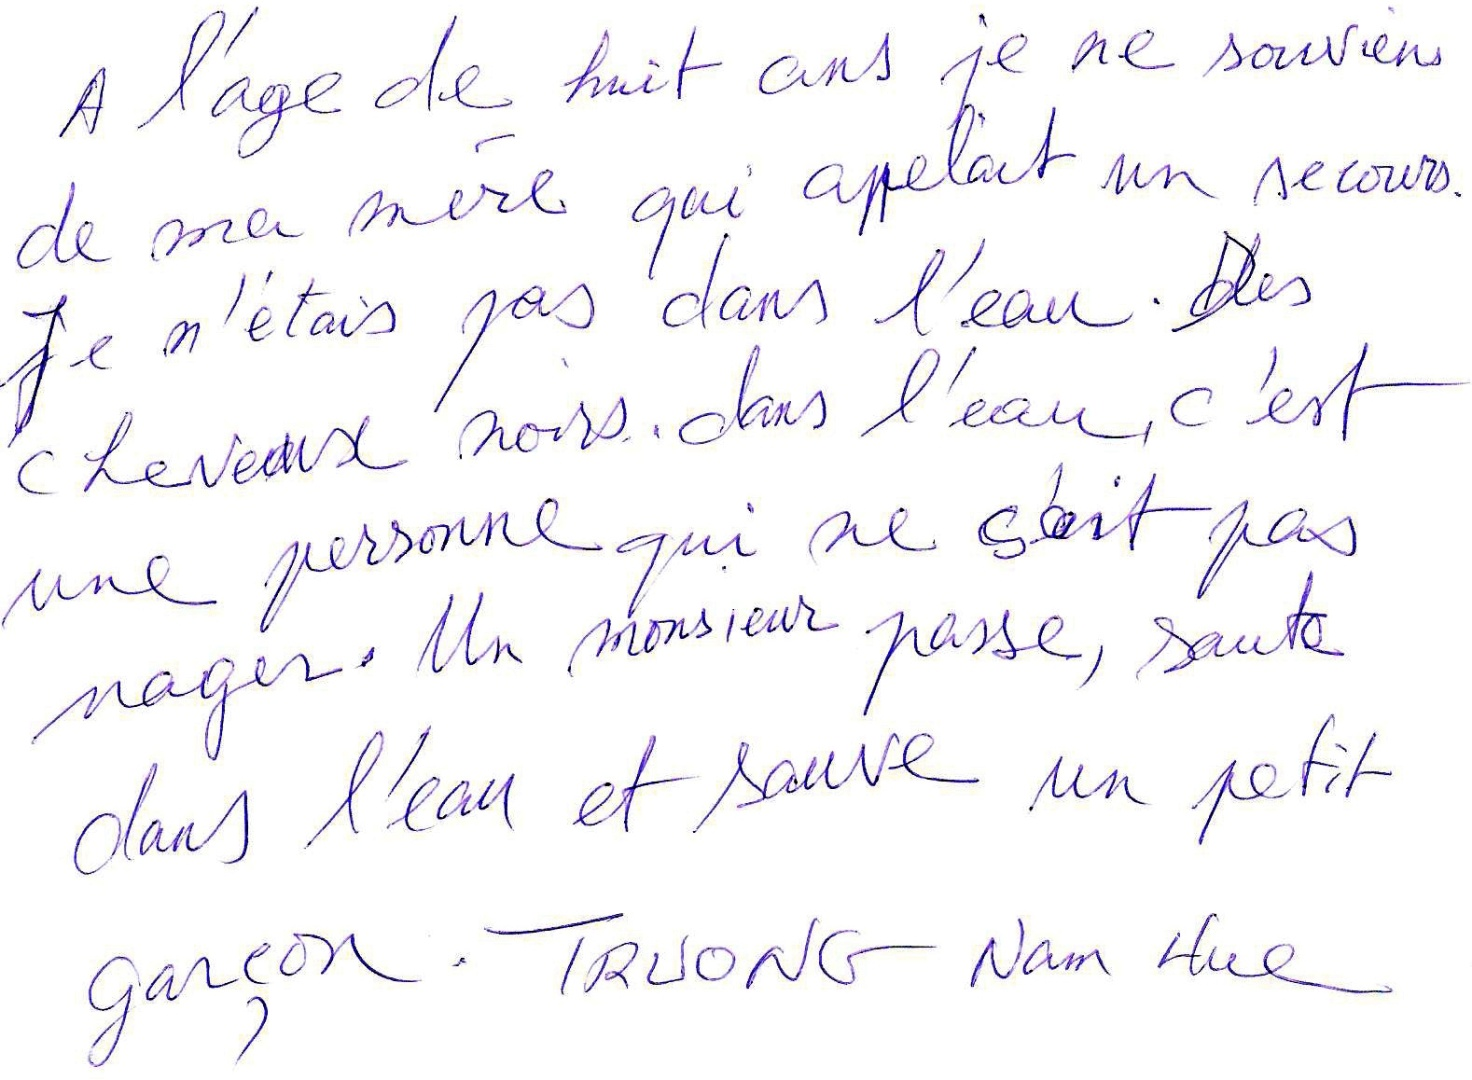 A l'age de huit ans je ne souviens
de ma mère qui appelait un secours.
Je n'étais pas dans l'eau. Des
cheveux noirs. dans l'eau, c'est
une personne qui ne sait pas
nager. Un monsieur passe, saute
dans l'eau et sauve un petit
garçon. TRUONG Nam Hue